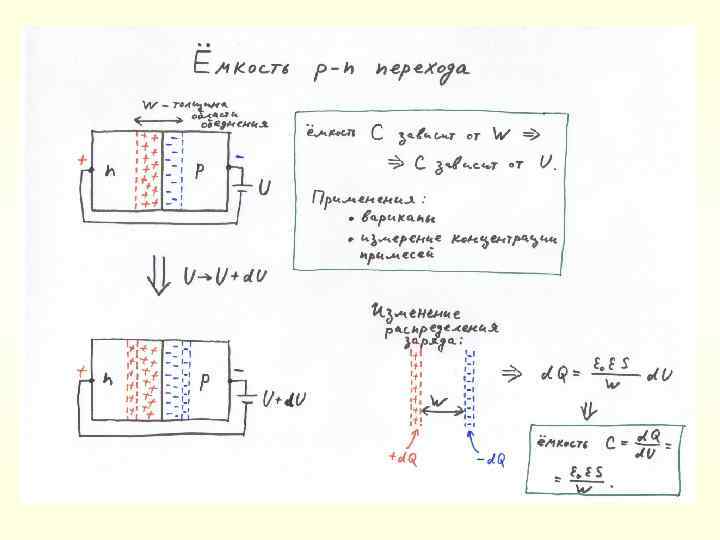 Ёмкость p-n перехода
W – толщина
области
обеднения
+ n p - U
U→U+dU
+ n p - U+dU
ёмкость C зависит от W ⇒
⇒ C зависит от U.
Применения:
• варикапы
• измерение концентрации
примесей
Изменение
распределения
заряда:
W
+dQ -dQ
⇒ dQ = ε₀εS/W dU
⇓
ёмкость C = dQ/dU =
= ε₀εS/W .